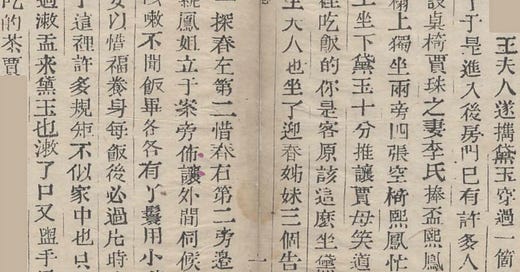 王夫人遂携黛玉穿過一個
了于是進入後房門已有許多人
設桌椅賈珠之妻李氏捧盃熙鳳
榻上獨坐兩旁四張空椅熙鳳忙
上坐下黛玉十分推讓賈母笑道
裡吃飯的你是客原該這麽坐黛
王夫人也坐了迎春姊妹三個告
一
一探春在第二惜春右第二旁邉
紈鳳姐立于案旁佈讓外間伺候
咳嗽不聞飯畢各各有丫鬟用小
女以惜福養身每飯後必過片時
了這裡許多規矩不似家中也只
過漱盂來黛玉也漱了口又盥手
吃的茶賈